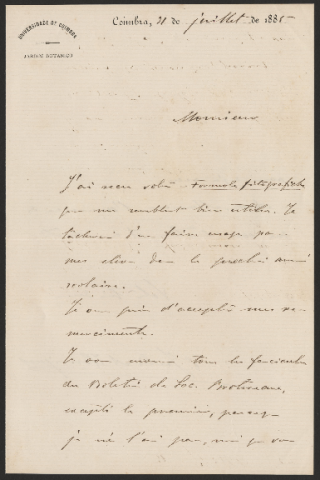 UNIVERSIDADE DE COIMBRA
JARDIM BOTANICO
Coimbra, 21 de juillet de 1885
Monsieur
J'ai reçu votre Formole
que me semblent bien utiles. Je
tâcherai d'en faire usage pour
mes élèves dans la prochain année
scolaire.
Je vous prie d'accepter mes re-
merciments.
Je vous envoie tous les fascicules
du Boletim da Soc. Broteriana,
excepté le premier, parce que
je ne l'ai pas,